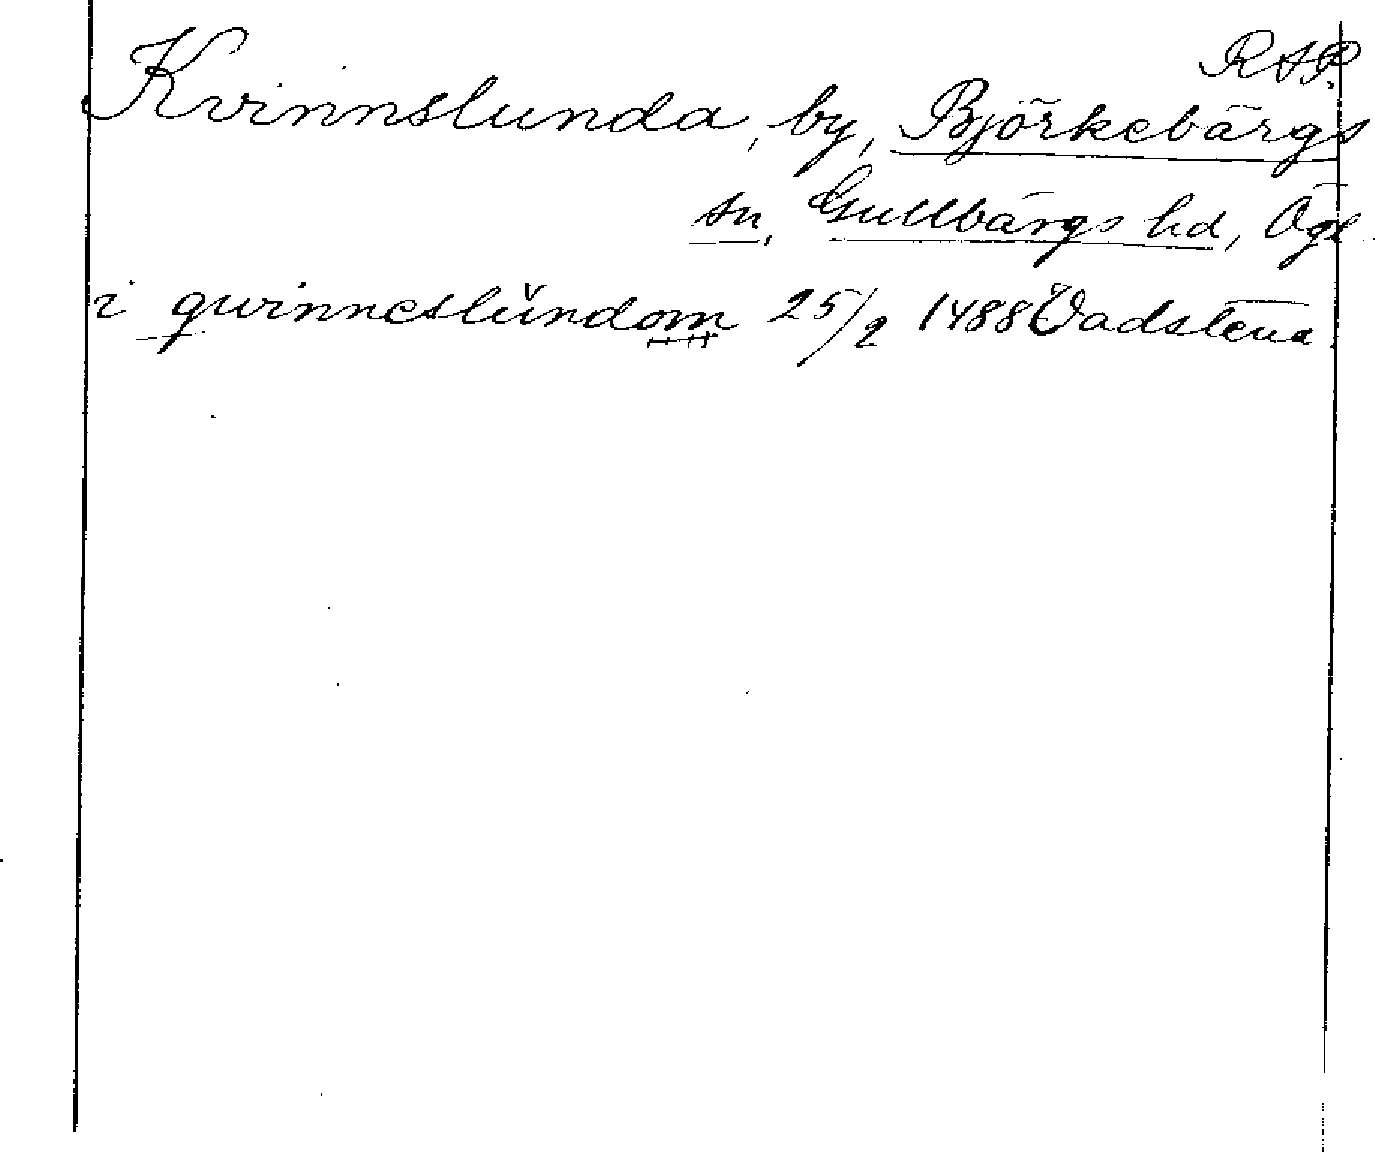 RAP.
Kvinnslunda, by, Björkebärgs
sn, Gullbärgs hd, Ögl.
i qwinneslŭndom 25/2 1488 Vadstena